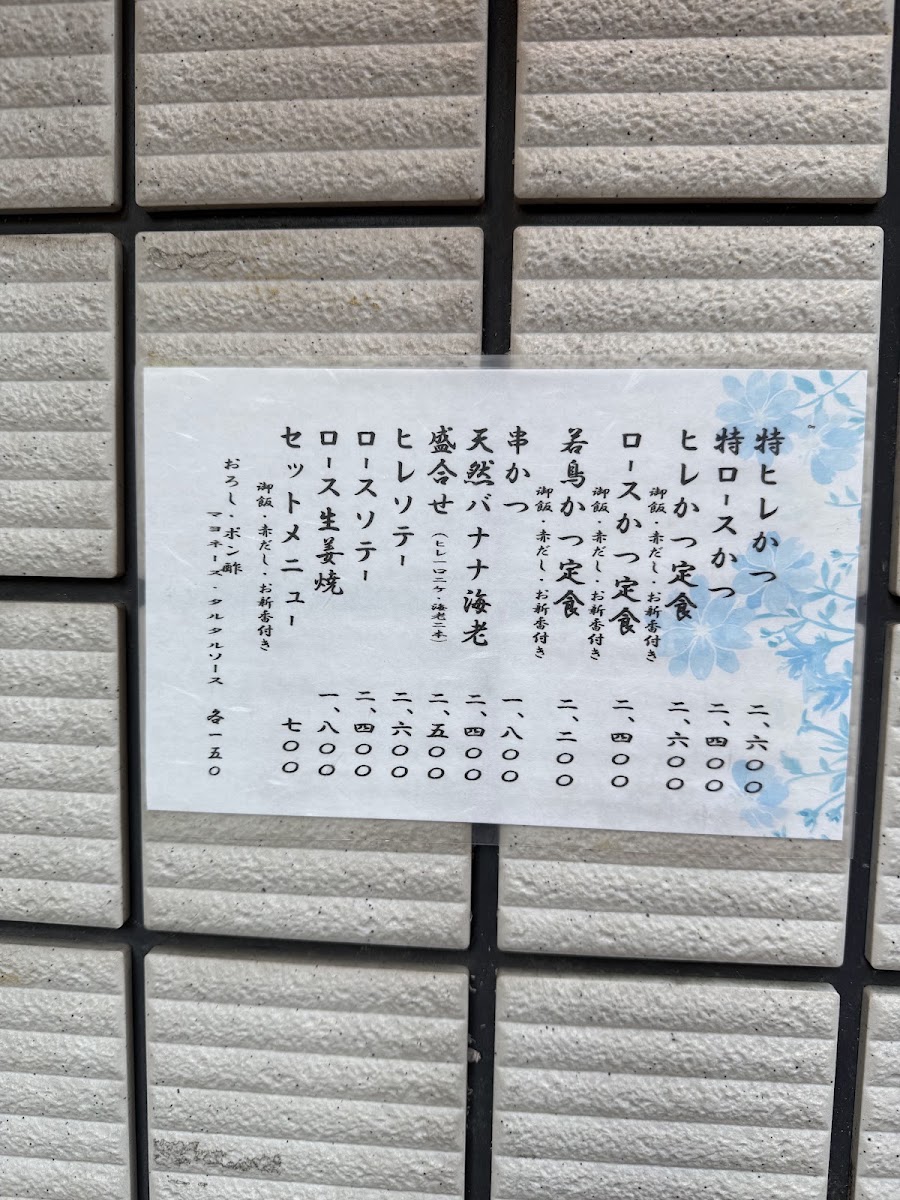 特ヒレかつ 二、六〇〇
特ロースかつ 二、四〇〇
ヒレかつ定食 二、六〇〇
御飯・赤だし・お新香付き
ロースかつ定食 二、四〇〇
御飯・赤だし・お新香付き
若鳥かつ定食 二、二〇〇
御飯・赤だし・お新香付き
串かつ 一、八〇〇
天然バナナ海老 二、四〇〇
盛合せ（ヒレ一口二ケ・海老二本） 二、五〇〇
ヒレソテー 二、六〇〇
ロースソテー 二、四〇〇
ロース生姜焼 一、八〇〇
セットメニュー 七〇〇
御飯・赤だし・お新香付き
おろし・ポン酢
マヨネーズ・タルタルソース 各一五〇